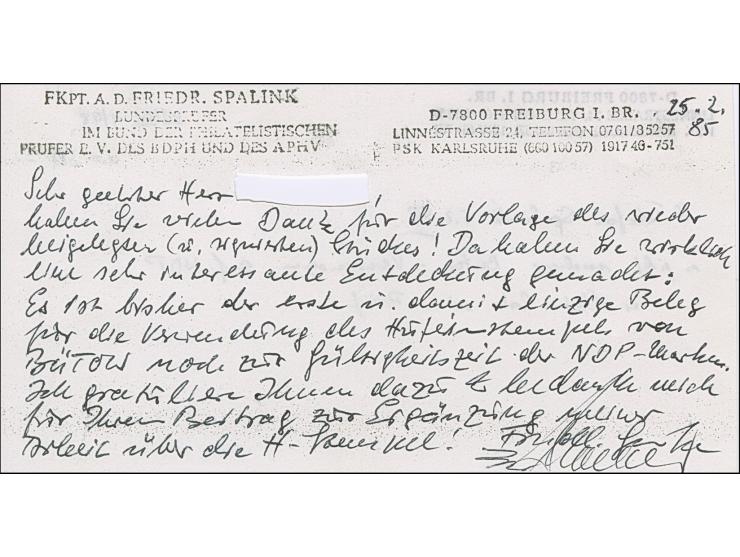 FKPT. A. D. FRIEDR. SPALINK
BUNDESPRÜFER
IM BUND DER PHILATELISTISCHEN
PRÜFER E. V. DES BDPH UND DES APHV
D-7800 FREIBURG I. BR. 25.2.
LINNÉSTRASSE 24, TELEFON 0761/85257 85
PSK KARLSRUHE (660 100 57) 1917 46-751
Sehr geehrter Herr !
haben Sie vielen Dank für die Vorlage des wieder
beigelegten (u. signierten) Stückes! Da haben Sie wirklich
eine sehr interessante Entdeckung gemacht:
Es ist bisher der erste u. damit einzige Beleg
für die Verwendung des Hufeisenstempels von
Bütow noch zur Gültigkeitszeit der NDP-Marken.
Ich gratuliere Ihnen dazu & bedanke mich
für Ihren Beitrag zur Ergänzung meiner
Arbeit über die H-Stempel!